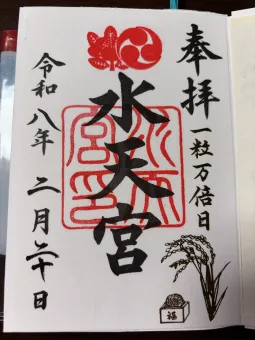 奉拝
一粒万倍日
水天宮
水天
宮印
令和八年 二月二十日
福